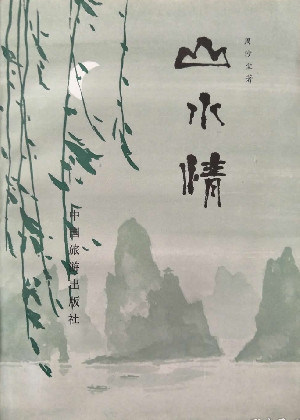 山水情
周沙尘著
中国旅游出版社